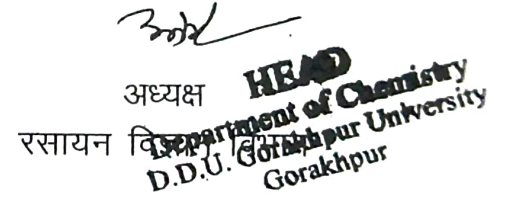 अध्यक्ष
रसायन विज्ञान विभाग
HEAD
Department of Chemistry
D.D.U. Gorakhpur University
Gorakhpur